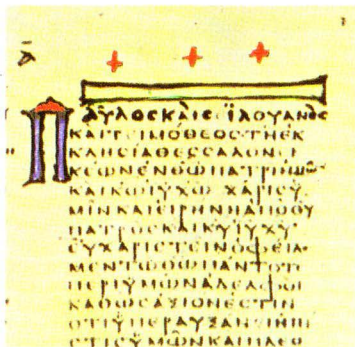 ΠΑΥΛΟΣ ΚΑΙ ΣΙΛΟΥΑΝΟΣ
ΚΑΙ ΤΙΜΟΘΕΟΣ ΤΗ ΕΚ
ΚΛΗΣΙΑ ΘΕΣΣΑΛΟΝΙ
ΚΕΩΝ ΕΝ ΘΩ ΠΑΤΡΙ ΗΜΩΝ
ΚΑΙ ΚΩ ΙΥ ΧΩ ΧΑΡΙΣ Υ
ΜΙΝ ΚΑΙ ΕΙΡΗΝΗ ΑΠΟ ΘΥ
ΠΑΤΡΟΣ ΚΑΙ ΚΥ ΙΥ ΧΥ
ΕΥΧΑΡΙΣΤΕΙΝ ΟΦΕΙΛΟ
ΜΕΝ ΤΩ ΘΩ ΠΑΝΤΟΤΕ
ΠΕΡΙ ΥΜΩΝ ΑΔΕΛΦΟΙ
ΚΑΘΩΣ ΑΞΙΟΝ ΕΣΤΙΝ
ΟΤΙ ΥΠΕΡΑΥΞΑΝΕΙ Η ΠΙ
ΣΤΙΣ ΥΜΩΝ ΚΑΙ ΠΛΕΟ